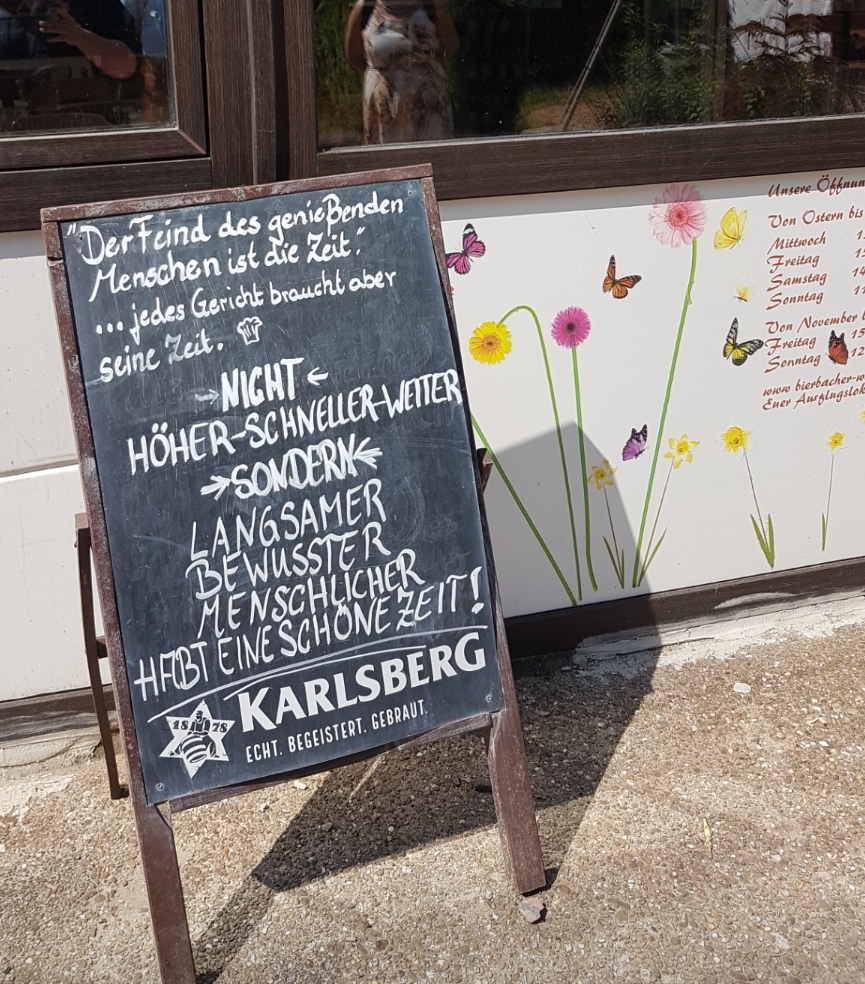 "Der Feind des genießenden
Menschen ist die Zeit."
...jedes Gericht braucht aber
seine Zeit.
→NICHT←
HÖHER-SCHNELLER-WEITER
→SONDERN←
LANGSAMER
BEWUSSTER
MENSCHLICHER
HABT EINE SCHÖNE ZEIT!
KARLSBERG
1878
ECHT. BEGEISTERT. GEBRAUT.
Unsere
Von Ostern
Mittwoch
Freitag
Samstag
Sonntag
Von November
Freitag
Sonntag
Euer